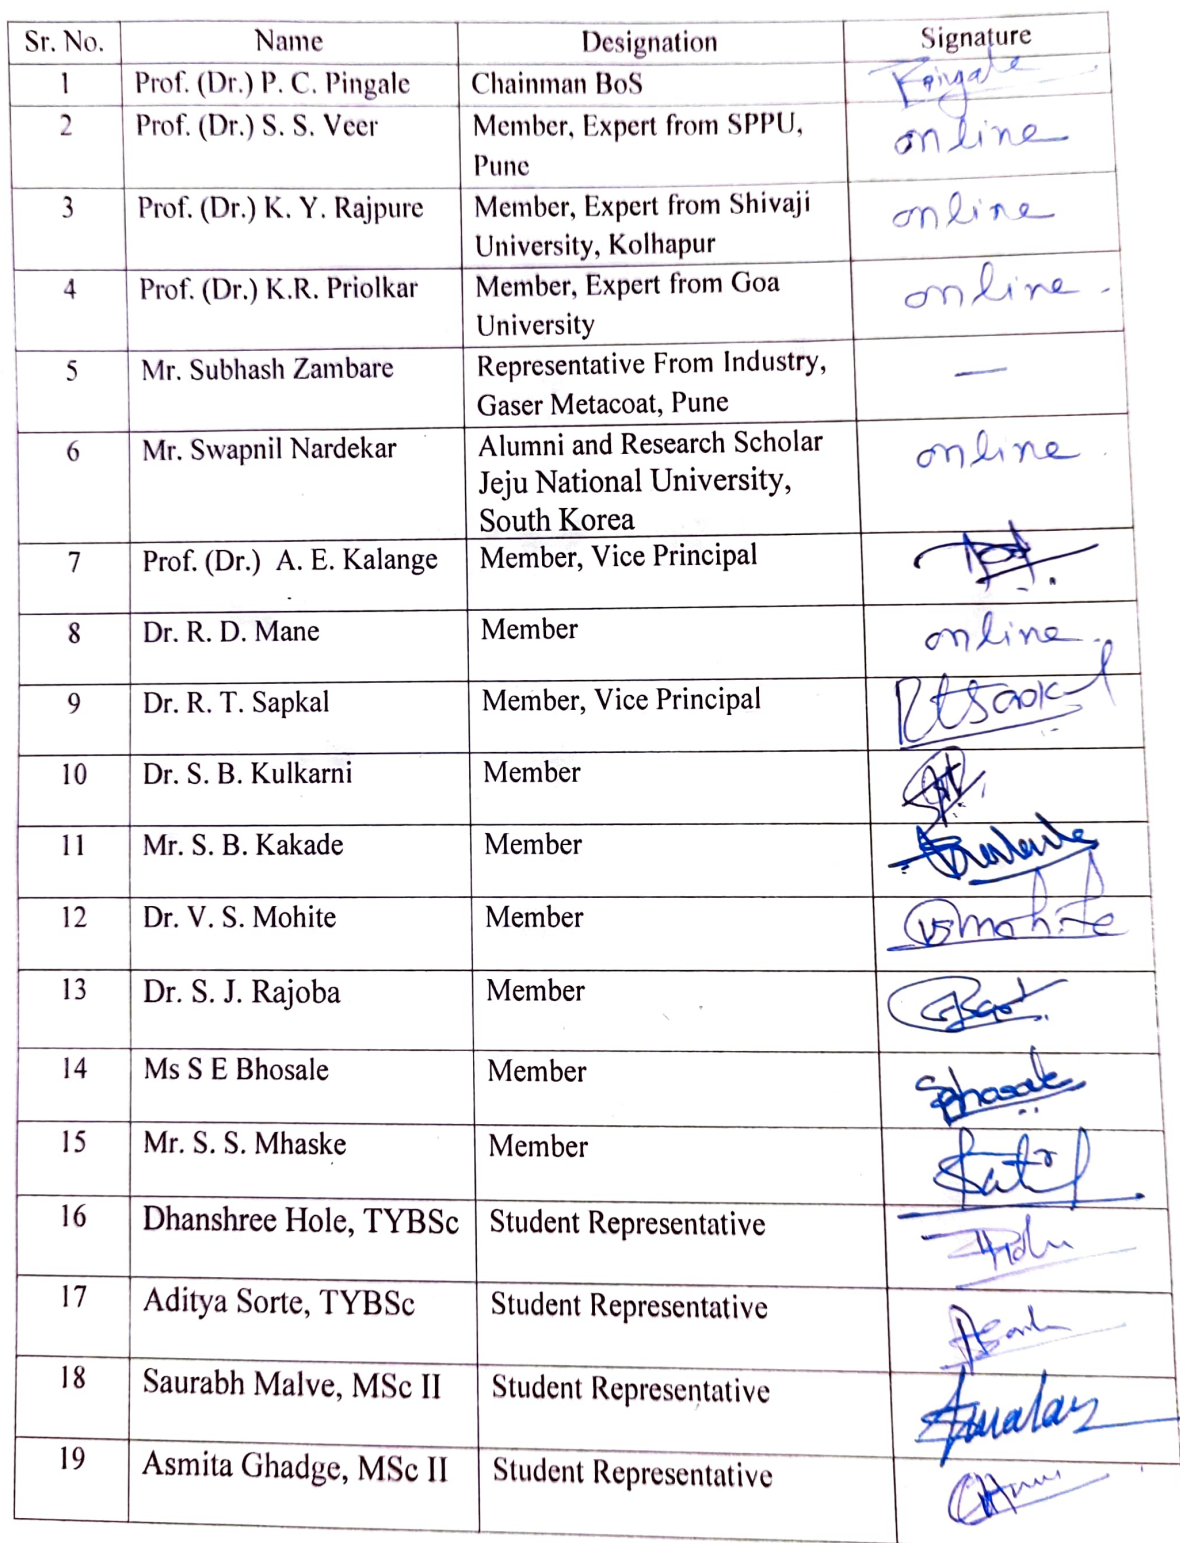 Sr. No. Name Designation Signature
1 Prof. (Dr.) P. C. Pingale Chainman BoS Pingale
2 Prof. (Dr.) S. S. Veer Member, Expert from SPPU, online
Pune
3 Prof. (Dr.) K. Y. Rajpure Member, Expert from Shivaji online
University, Kolhapur
4 Prof. (Dr.) K.R. Priolkar Member, Expert from Goa online
University
5 Mr. Subhash Zambare Representative From Industry, —
Gaser Metacoat, Pune
6 Mr. Swapnil Nardekar Alumni and Research Scholar online
Jeju National University,
South Korea
7 Prof. (Dr.) A. E. Kalange Member, Vice Principal
8 Dr. R. D. Mane Member online
9 Dr. R. T. Sapkal Member, Vice Principal
10 Dr. S. B. Kulkarni Member
11 Mr. S. B. Kakade Member
12 Dr. V. S. Mohite Member VSmohite
13 Dr. S. J. Rajoba Member
14 Ms S E Bhosale Member
15 Mr. S. S. Mhaske Member
16 Dhanshree Hole, TYBSc Student Representative
17 Aditya Sorte, TYBSc Student Representative
18 Saurabh Malve, MSc II Student Representative
19 Asmita Ghadge, MSc II Student Representative